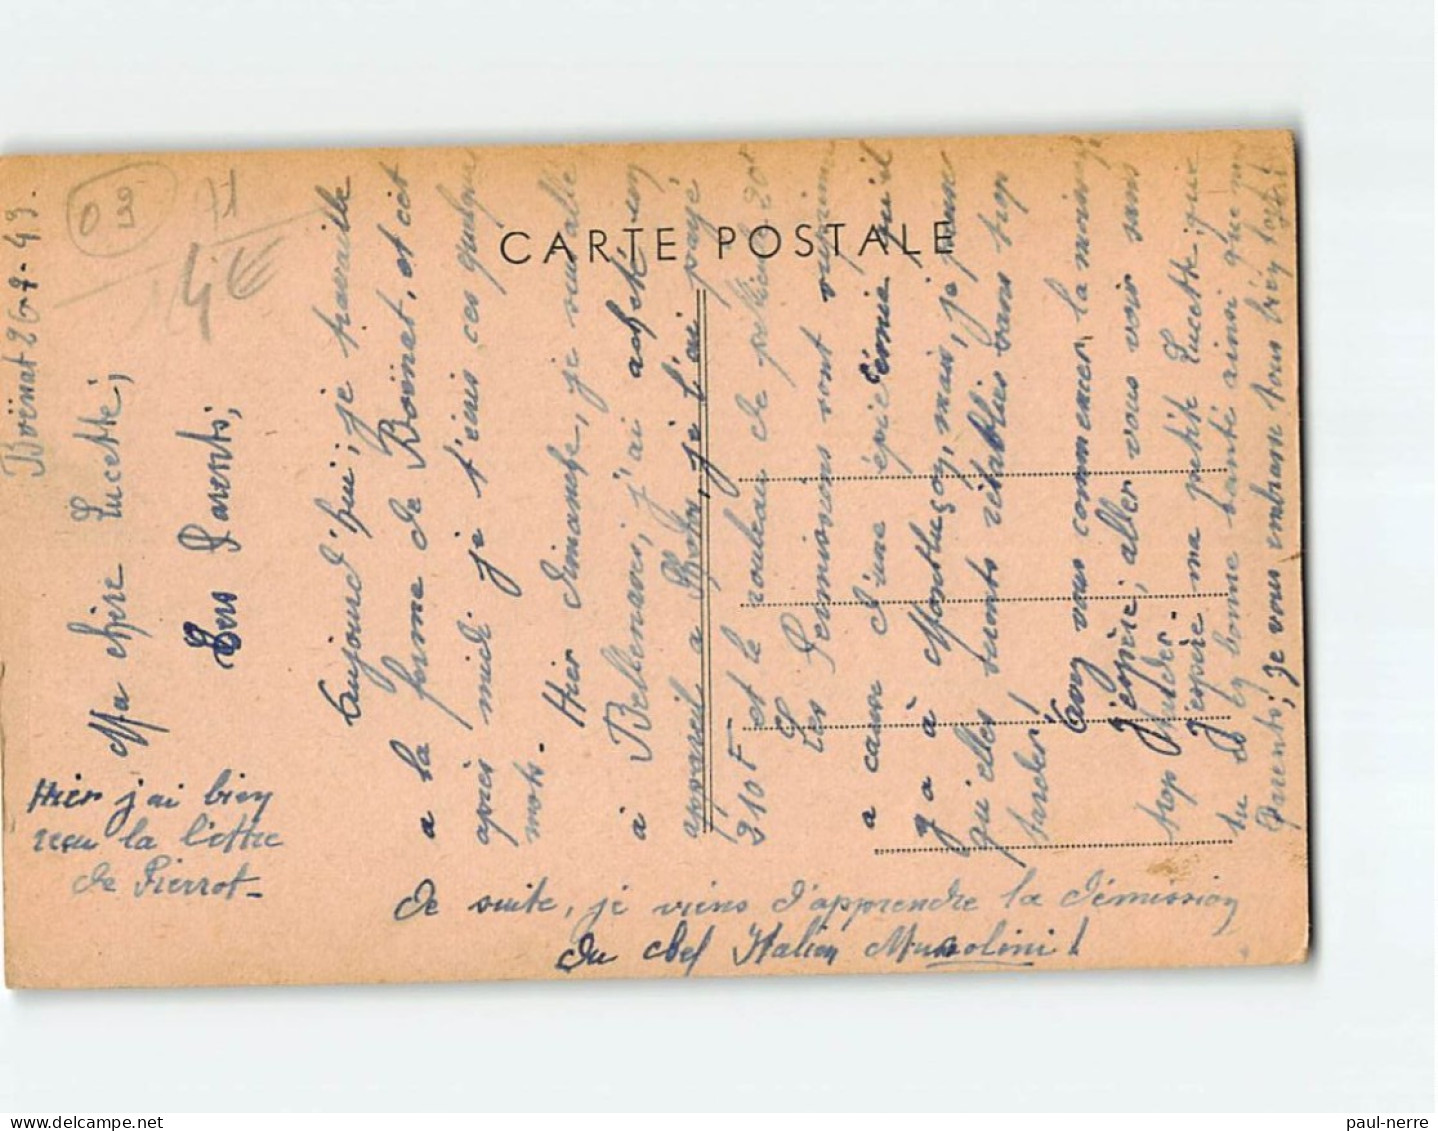 CARTE POSTALE
Boënat 26-7-43.
Ma chère Lucette;
Bers Parents;
Aujourd'hui; je travaille
a la forme de Boënat, et cet
après midi je t'ecris ces quelques
mots.
Hier dimanche, je suis allé
à Bellenaves, j'ai acheté un
appareil a Photo, je l'ai payé,
210F et le rouleau de pellicule 20F
Les Permissions sont
a cause d'une épidémie qu'il
y a à Montluçon, mais, je pense
qu'elles seront rétablies sans trop
tarder!
vous commencer la moisson,
j'espère; aller vous voir sans
trop tarder.
J'espère ma petite Lucette que
tu es en bonne santé ainsi que mes
Parents; je vous embrasse tous bien fort
Hier j'ai bien
reçu la lettre
de Pierrot_
De suite, je viens d'apprendre la démission
du chef Italien Mussolini!
4€
paul-nerre